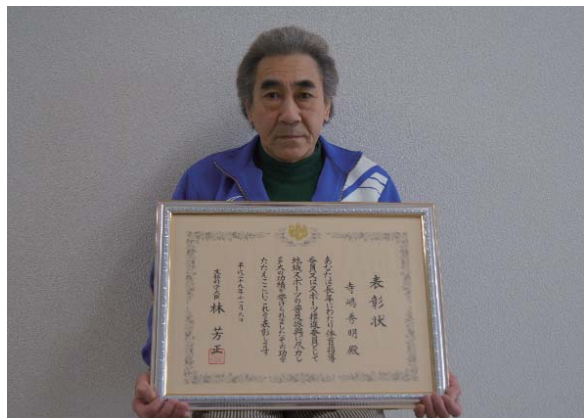 表彰状
寺嶋秀明殿
あなたは長年にわたり体育指導
委員又はスポーツ推進委員として
地域スポーツの普及振興に尽力し
多大の功績を挙げられましたその功を
たたえここにこれを表彰します
平成二十九年十一月九日
文部科学大臣 林芳正